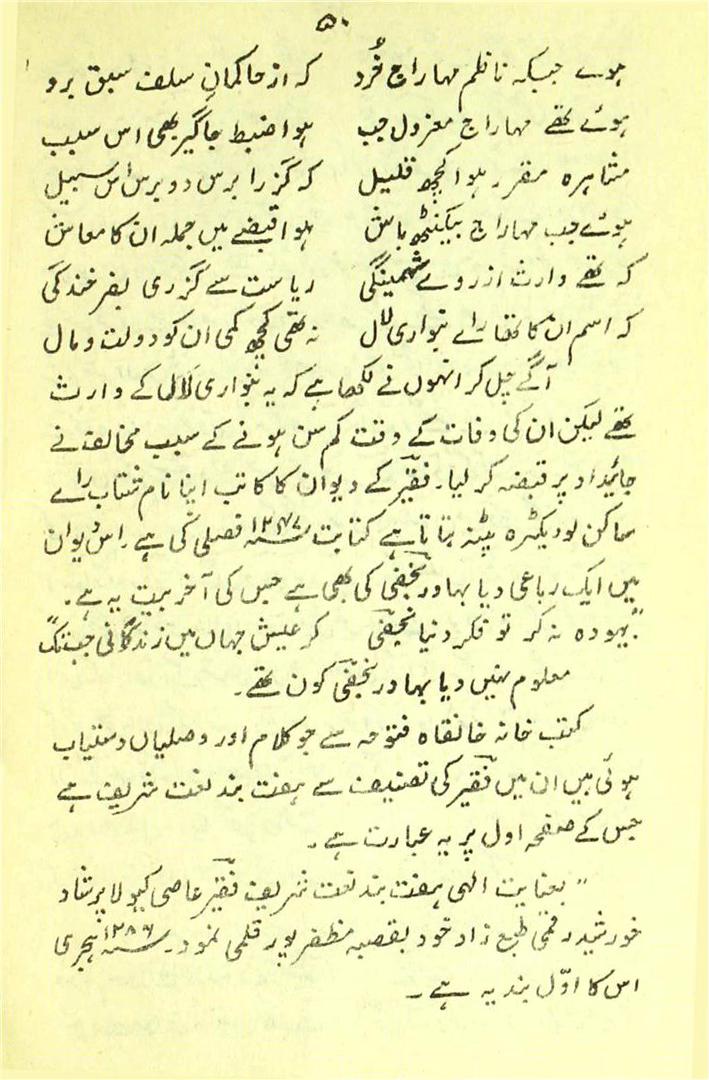 ۵۰
ہوے جبکہ ناظم مہاراج فُرد کہ از حاکمانِ سلف سبق برو
ہوئے تھے مہاراج معزول جب ہوا ضبط جاگیر بھی اس سبب
مشاہرہ مقرر ہوا کچھ قلیل کہ گزرا برس دو برس اس سبیل
ہوئے جب مہاراج بیکنٹھ باش ہوا قبضے میں جملہ ان کا معاش
کہ تھے وارث از روے ریاست سے گزری بفرخندگی
کہ اسم ان کا تھا راے بنواری لال نہ تھی کچھ کمی ان کو دولت و مال
آگے چل کر انہوں نے لکھا ہے کہ یہ بنواری لال کے وارث
تھے لیکن ان کی وفات کے وقت کم سن ہونے کے سبب مخالف نے
جائیداد پر قبضہ کر لیا۔ فقیرؔ کے دیوان کا کاتب اپنا نام شتاب راے
ساکن لودیکٹرہ پٹنہ بتاتا ہے کتابت ۱۲۴۷؁ فصلی کی ہے۔ اس دیوان
میں ایک رباعی دیا بہادر نجفیؔ کی بھی ہے جس کی آخر بیت یہ ہے۔
"بیہودہ نہ کر تو فکر دنیا نجفیؔ کر عیش جہاں میں زندگانی جب تک"
معلوم نہیں دیا بہادر نجفیؔ کون تھے۔
کتب خانہ خانقاہ فتوحہ سے جو کلام اور وصلیاں دستیاب
ہوئی ہیں ان میں فقیرؔ کی تصنیف سے ہفت بند نعت شریف ہے
جس کے صفحہ اول پر یہ عبارت ہے۔
"بعنایت الٰہی ہفت بند نعت شریف فقیرؔ عاصی کیولا پرشاد
خورشید رقمی طبع زاد خود بقصبہ مظفر پور قلمی نمود۔ ۱۲۸۶؁ ہجری
اس کا اوّل بند یہ ہے۔